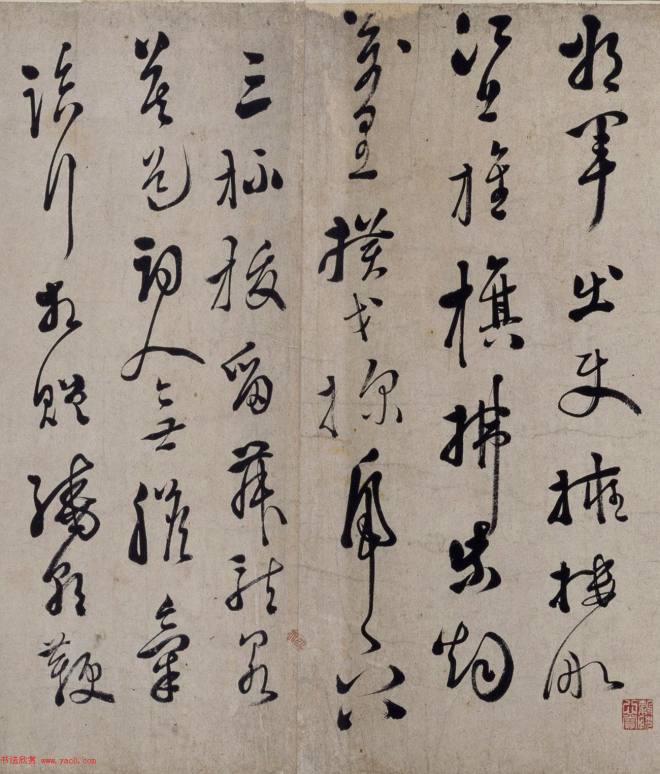 將軍出使擁樓船
江上旌旗拂紫煙
萬里橫戈探虎穴
三杯拔劍舞龍泉
莫道詞人無膽氣
臨行將贈繞朝鞭
书法欣赏 www.yac8.com